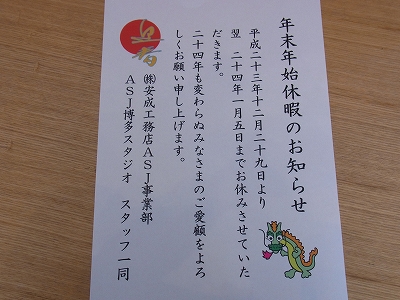 年末年始休暇のお知らせ
平成二十三年十二月二十九日より
翌　二十四年一月五日までお休みさせていた
だきます。
二十四年も変わらぬみなさまのご愛顧をよろ
しくお願い申し上げます。
㈱安成工務店ＡＳＪ事業部
ＡＳＪ博多スタジオ　スタッフ一同